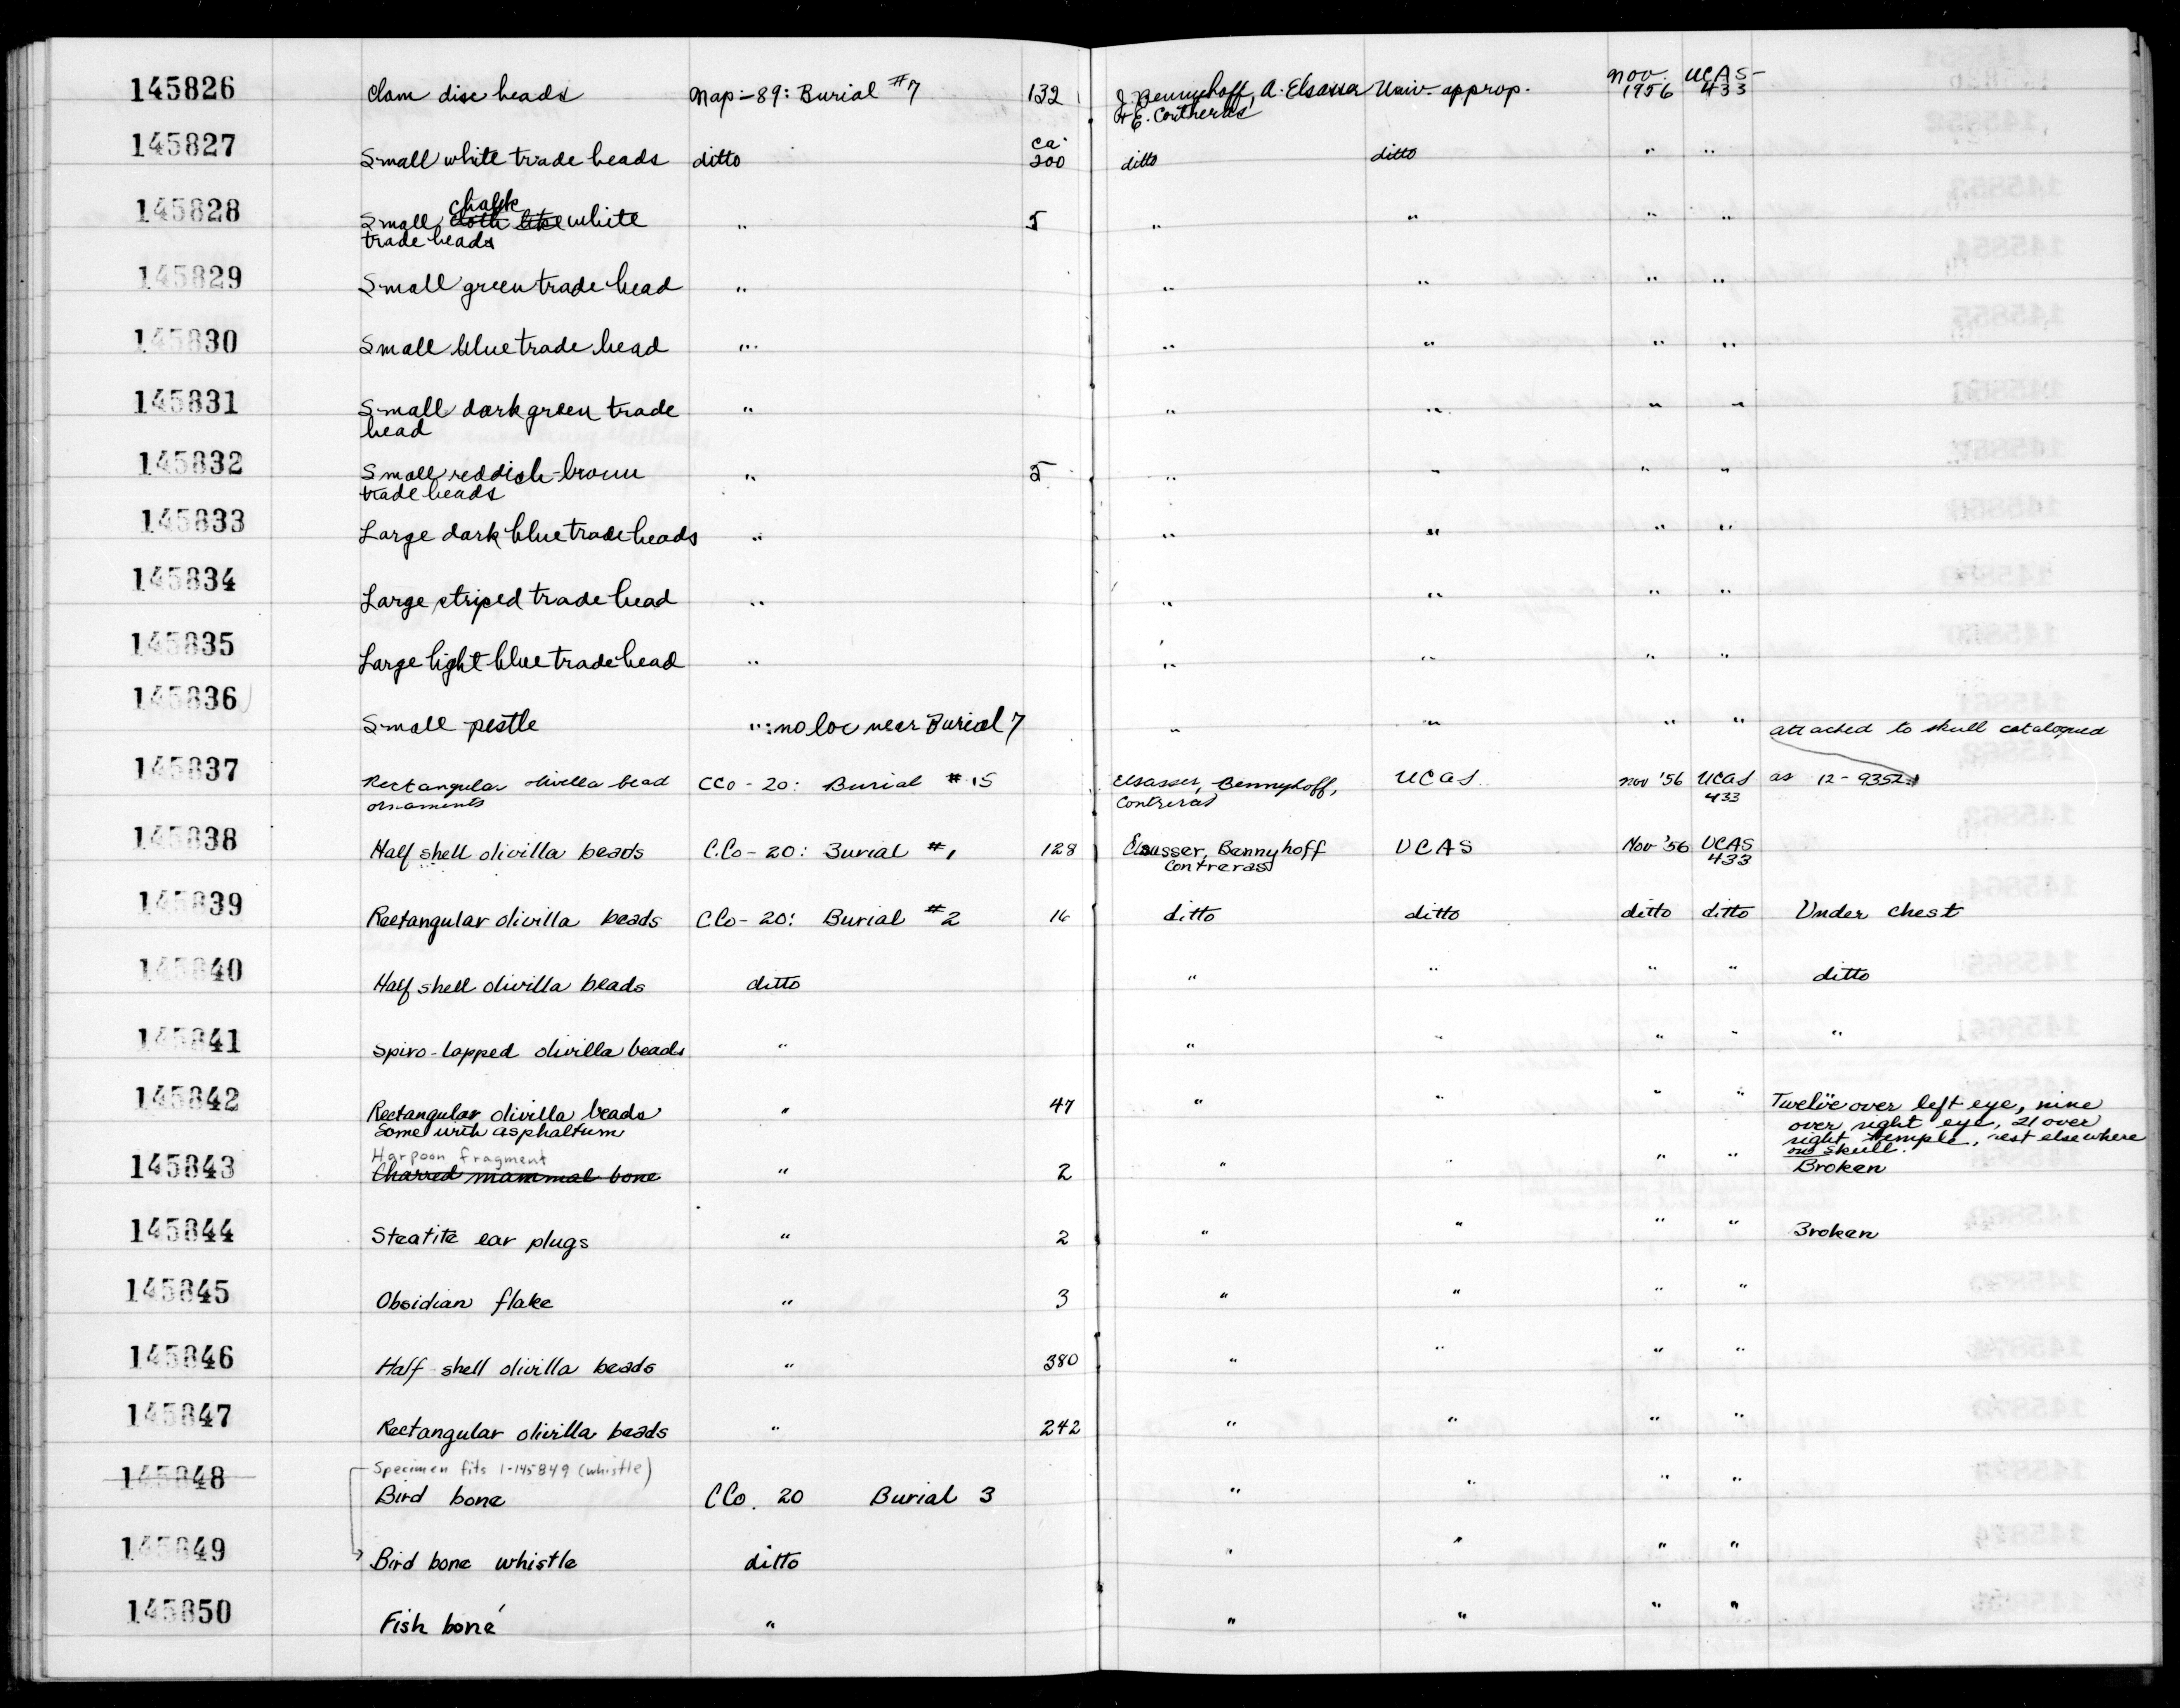 145826 Clam disc beads Nap-89: Burial #7 132 J. Bennyhoff, A. Elsasser Univ. approp. Nov. 1956 UCAS-433
& E. Contreras
145827 Small white trade beads ditto ca. 200 ditto ditto " "
145828 Small chalk white " 5 " " " "
trade beads
145829 Small green trade bead " " " " "
145830 Small blue trade bead " " " " "
145831 Small dark green trade " " " " "
bead
145832 Small reddish-brown " 5 " " " "
trade beads
145833 Large dark blue trade beads " " " " "
145834 Large striped trade bead " " " " "
145835 Large light blue trade bead " " " " "
145836 Small pestle ": no loc near Burial 7 " " " "
attached to skull catalogued
145837 Rectangular olivella bead CCo-20: Burial #15 Elsasser, Bennyhoff, UCAS Nov '56 UCAS 433 as 12-9352
ornaments Contreras
145838 Half shell olivilla beads C.Co-20: Burial #1 128 Elsasser, Bennyhoff UCAS Nov '56 UCAS 433
Contreras
145839 Rectangular olivilla beads C.Co-20: Burial #2 16 ditto ditto ditto ditto Under chest
145840 Half shell olivilla beads ditto " " " " ditto
145841 Spiro-lopped olivilla beads " " " " " "
145842 Rectangular olivilla beads " 47 " " " " Twelve over left eye, nine
Some with asphaltum over right eye, 21 over
right temple, rest elsewhere
on skull.
Harpoon fragment
145843 Charred mammal bone " 2 " " " " Broken
145844 Steatite ear plugs " 2 " " " " Broken
145845 Obsidian flake " 3 " " " "
145846 Half-shell olivilla beads " 380 " " " "
145847 Rectangular olivilla beads " 242 " " " "
Specimen fits 1-145849 (whistle)
145848 Bird bone CCo. 20 Burial 3 " " " "
145849 Bird bone whistle ditto " " " "
145850 Fish bone " " " " "